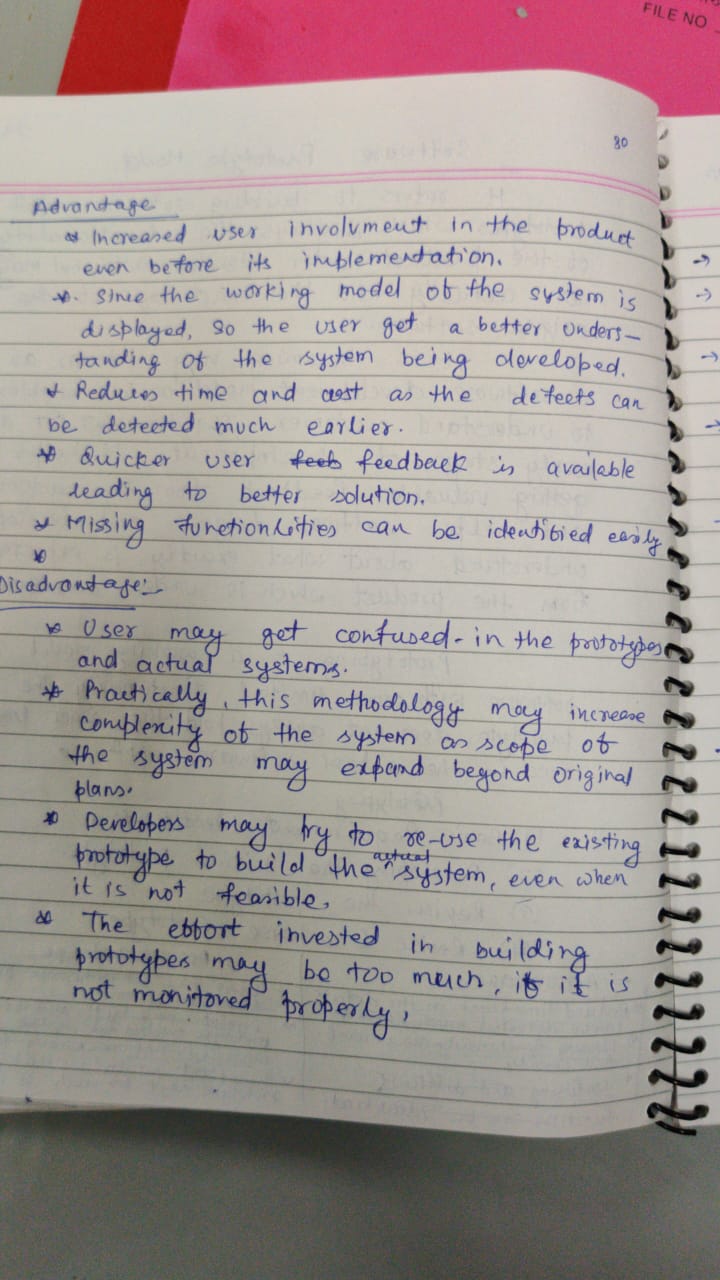 FILE NO
80
Advantage
* Increased user involvment in the product
even before its implementation.
*. Since the working model of the system is
displayed, so the user get a better unders-
tanding of the system being developed.
* Reduces time and cost as the defects can
be detected much earlier.
* Quicker user feedback is available
leading to better solution.
* Missing functionlities can be identified easily
*
Disadvantage:-
* User may get confused in the prototypes
and actual systems.
* Practically, this methodology may increase
complexity of the system as scope of
the system may expand beyond original
plans.
* Developers may try to re-use the existing
prototype to build the actual system, even when
it is not feasible.
* The effort invested in building
prototypes may be too much, if it is
not monitored properly.